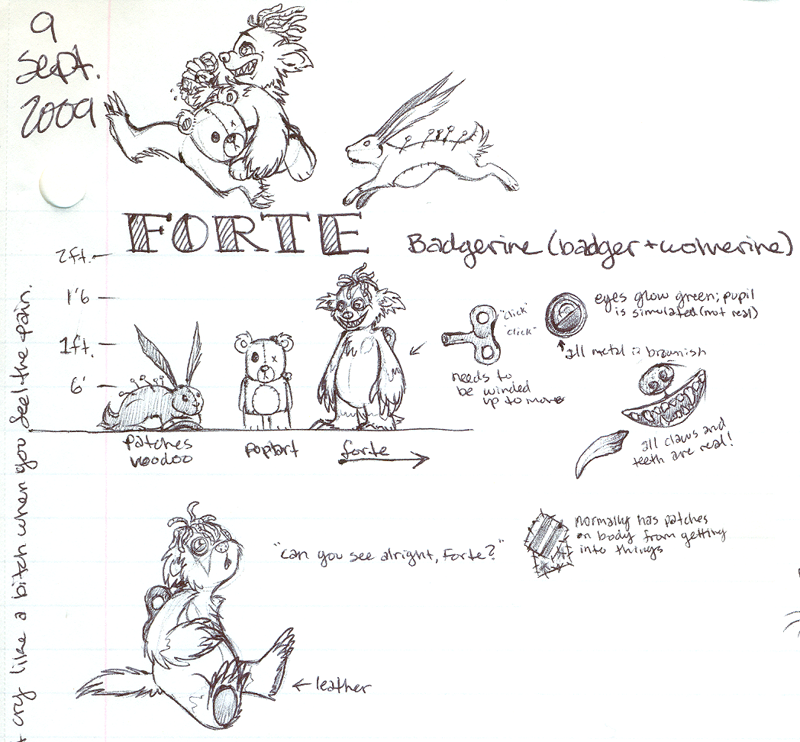 9
Sept.
2009
FORTE
Badgerine (badger + wolverine)
2ft.
1'6
1ft.
6'
Patches
Voodoo
poptart
forte
"click"
"click"
needs to
be winded
up to move
eyes glow green; pupil
is simulated (not real)
all metal is brownish
all claws and
teeth are real!
"can you see alright, Forte?"
normally has patches
on body from getting
into things
leather
cry like a bitch when you feel the pain.